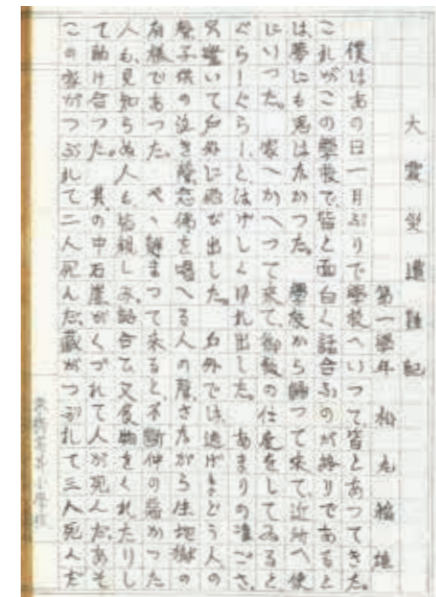 大震災遭難記
第一學年
僕はあの日一月ぶりで學校へいつて皆とあつてきた。
これがこの學校で、皆と面白く話合ふのが終りであると
は、夢にも思はなかつた。學校から歸つて來て、近所へ使
にいつた。家へかへつて來て、御飯の仕度をしてゐると
ぐらーぐらーとはげしくゆれ出した。あまりの凄ごさ、
驚いて戸外に飛び出した。戸外では、逃げまどう人の
聲子供の泣き聲念佛を唱へる人の聲、さながら生地獄の
有樣であつた。段々静まつて來ると、不斷仲の惡かつた
人も、見知らぬ人も、皆親しみ、話合ひ又食物をくれたりし
て助け合つた。其の中石崖がくづれて人が死んだ、あそ
この家がつぶれて二人死んだ、藏がつぶれて三人死んだ